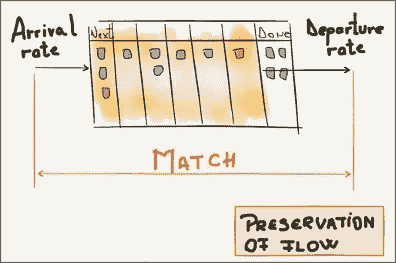 Arrival
rate
Next
Done
Departure
rate
MATCH
PRESERVATION
OF FLOW